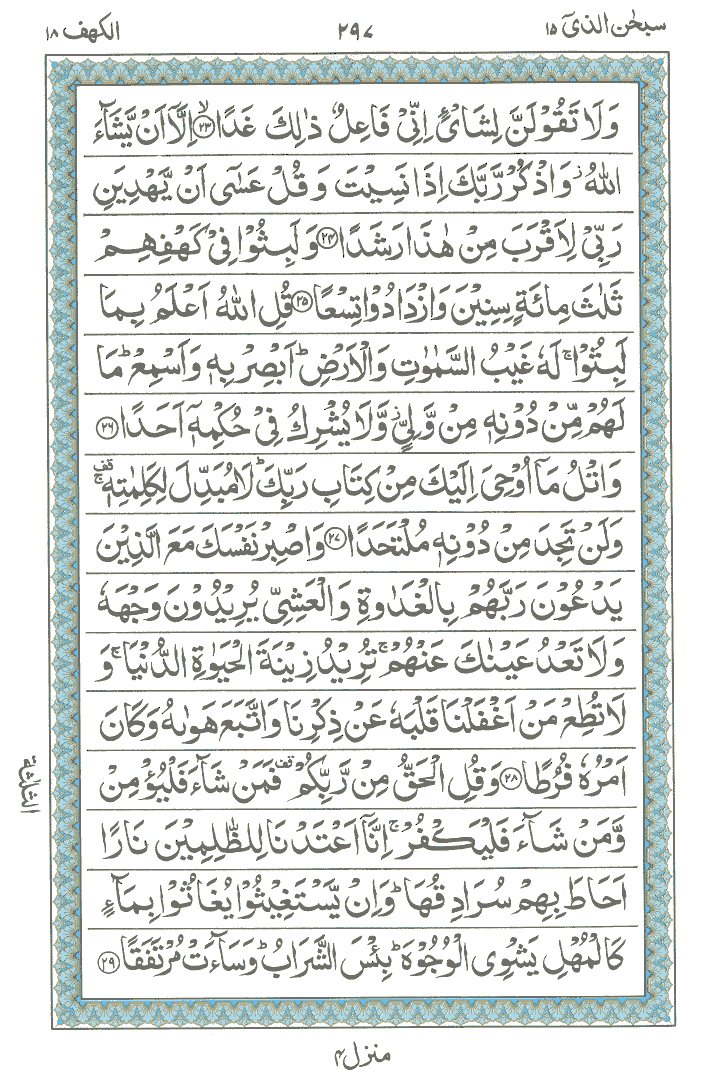 سبحٰن الذیٓ ۱۵
۲۹۷
الکهف ۱۸
وَلَا تَقُوْلَنَّ لِشَایْءٍ اِنِّیْ فَاعِلٌ ذٰلِكَ غَدًا ۙ﴿۲۳﴾ اِلَّاۤ اَنْ یَّشَآءَ
اللهُ ؗ وَاذْكُرْ رَّبَّكَ اِذَا نَسِیْتَ وَ قُلْ عَسٰۤی اَنْ یَّهْدِیَنِ
رَبِّیْ لِاَقْرَبَ مِنْ هٰذَا رَشَدًا ﴿۲۴﴾ وَ لَبِثُوْا فِیْ كَهْفِهِمْ
ثَلٰثَ مِائَةٍ سِنِیْنَ وَازْدَادُوْا تِسْعًا ﴿۲۵﴾ قُلِ اللهُ اَعْلَمُ بِمَا
لَبِثُوْا ۚ لَهٗ غَیْبُ السَّمٰوٰتِ وَالْاَرْضِ ؕ اَبْصِرْ بِهٖ وَاَسْمِعْ ؕ مَا
لَهُمْ مِّنْ دُوْنِهٖ مِنْ وَّلِیٍّ ؗ وَّلَا یُشْرِكُ فِیْ حُكْمِهٖۤ اَحَدًا ﴿۲۶﴾
وَاتْلُ مَاۤ اُوْحِیَ اِلَیْكَ مِنْ كِتَابِ رَبِّكَ ؕ لَا مُبَدِّلَ لِكَلِمٰتِهٖ ۚ۟
وَلَنْ تَجِدَ مِنْ دُوْنِهٖ مُلْتَحَدًا ﴿۲۷﴾ وَاصْبِرْ نَفْسَكَ مَعَ الَّذِیْنَ
یَدْعُوْنَ رَبَّهُمْ بِالْغَدٰوةِ وَالْعَشِیِّ یُرِیْدُوْنَ وَجْهَهٗ
وَلَا تَعْدُ عَیْنٰكَ عَنْهُمْ ۚ تُرِیْدُ زِیْنَةَ الْحَیٰوةِ الدُّنْیَا ۚ وَ
لَا تُطِعْ مَنْ اَغْفَلْنَا قَلْبَهٗ عَنْ ذِكْرِنَا وَاتَّبَعَ هَوٰىهُ وَكَانَ
اَمْرُهٗ فُرُطًا ﴿۲۸﴾ وَقُلِ الْحَقُّ مِنْ رَّبِّكُمْ ۟ فَمَنْ شَآءَ فَلْیُؤْمِنْ
وَّمَنْ شَآءَ فَلْیَكْفُرْ ۚ اِنَّاۤ اَعْتَدْنَا لِلظّٰلِمِیْنَ نَارًا
اَحَاطَ بِهِمْ سُرَادِقُهَا ؕ وَاِنْ یَّسْتَغِیْثُوْا یُغَاثُوْا بِمَآءٍ
كَالْمُهْلِ یَشْوِی الْوُجُوْهَ ؕ بِئْسَ الشَّرَابُ ؕ وَسَآءَتْ مُرْتَفَقًا ﴿۲۹﴾
الثلثة
منزل۴